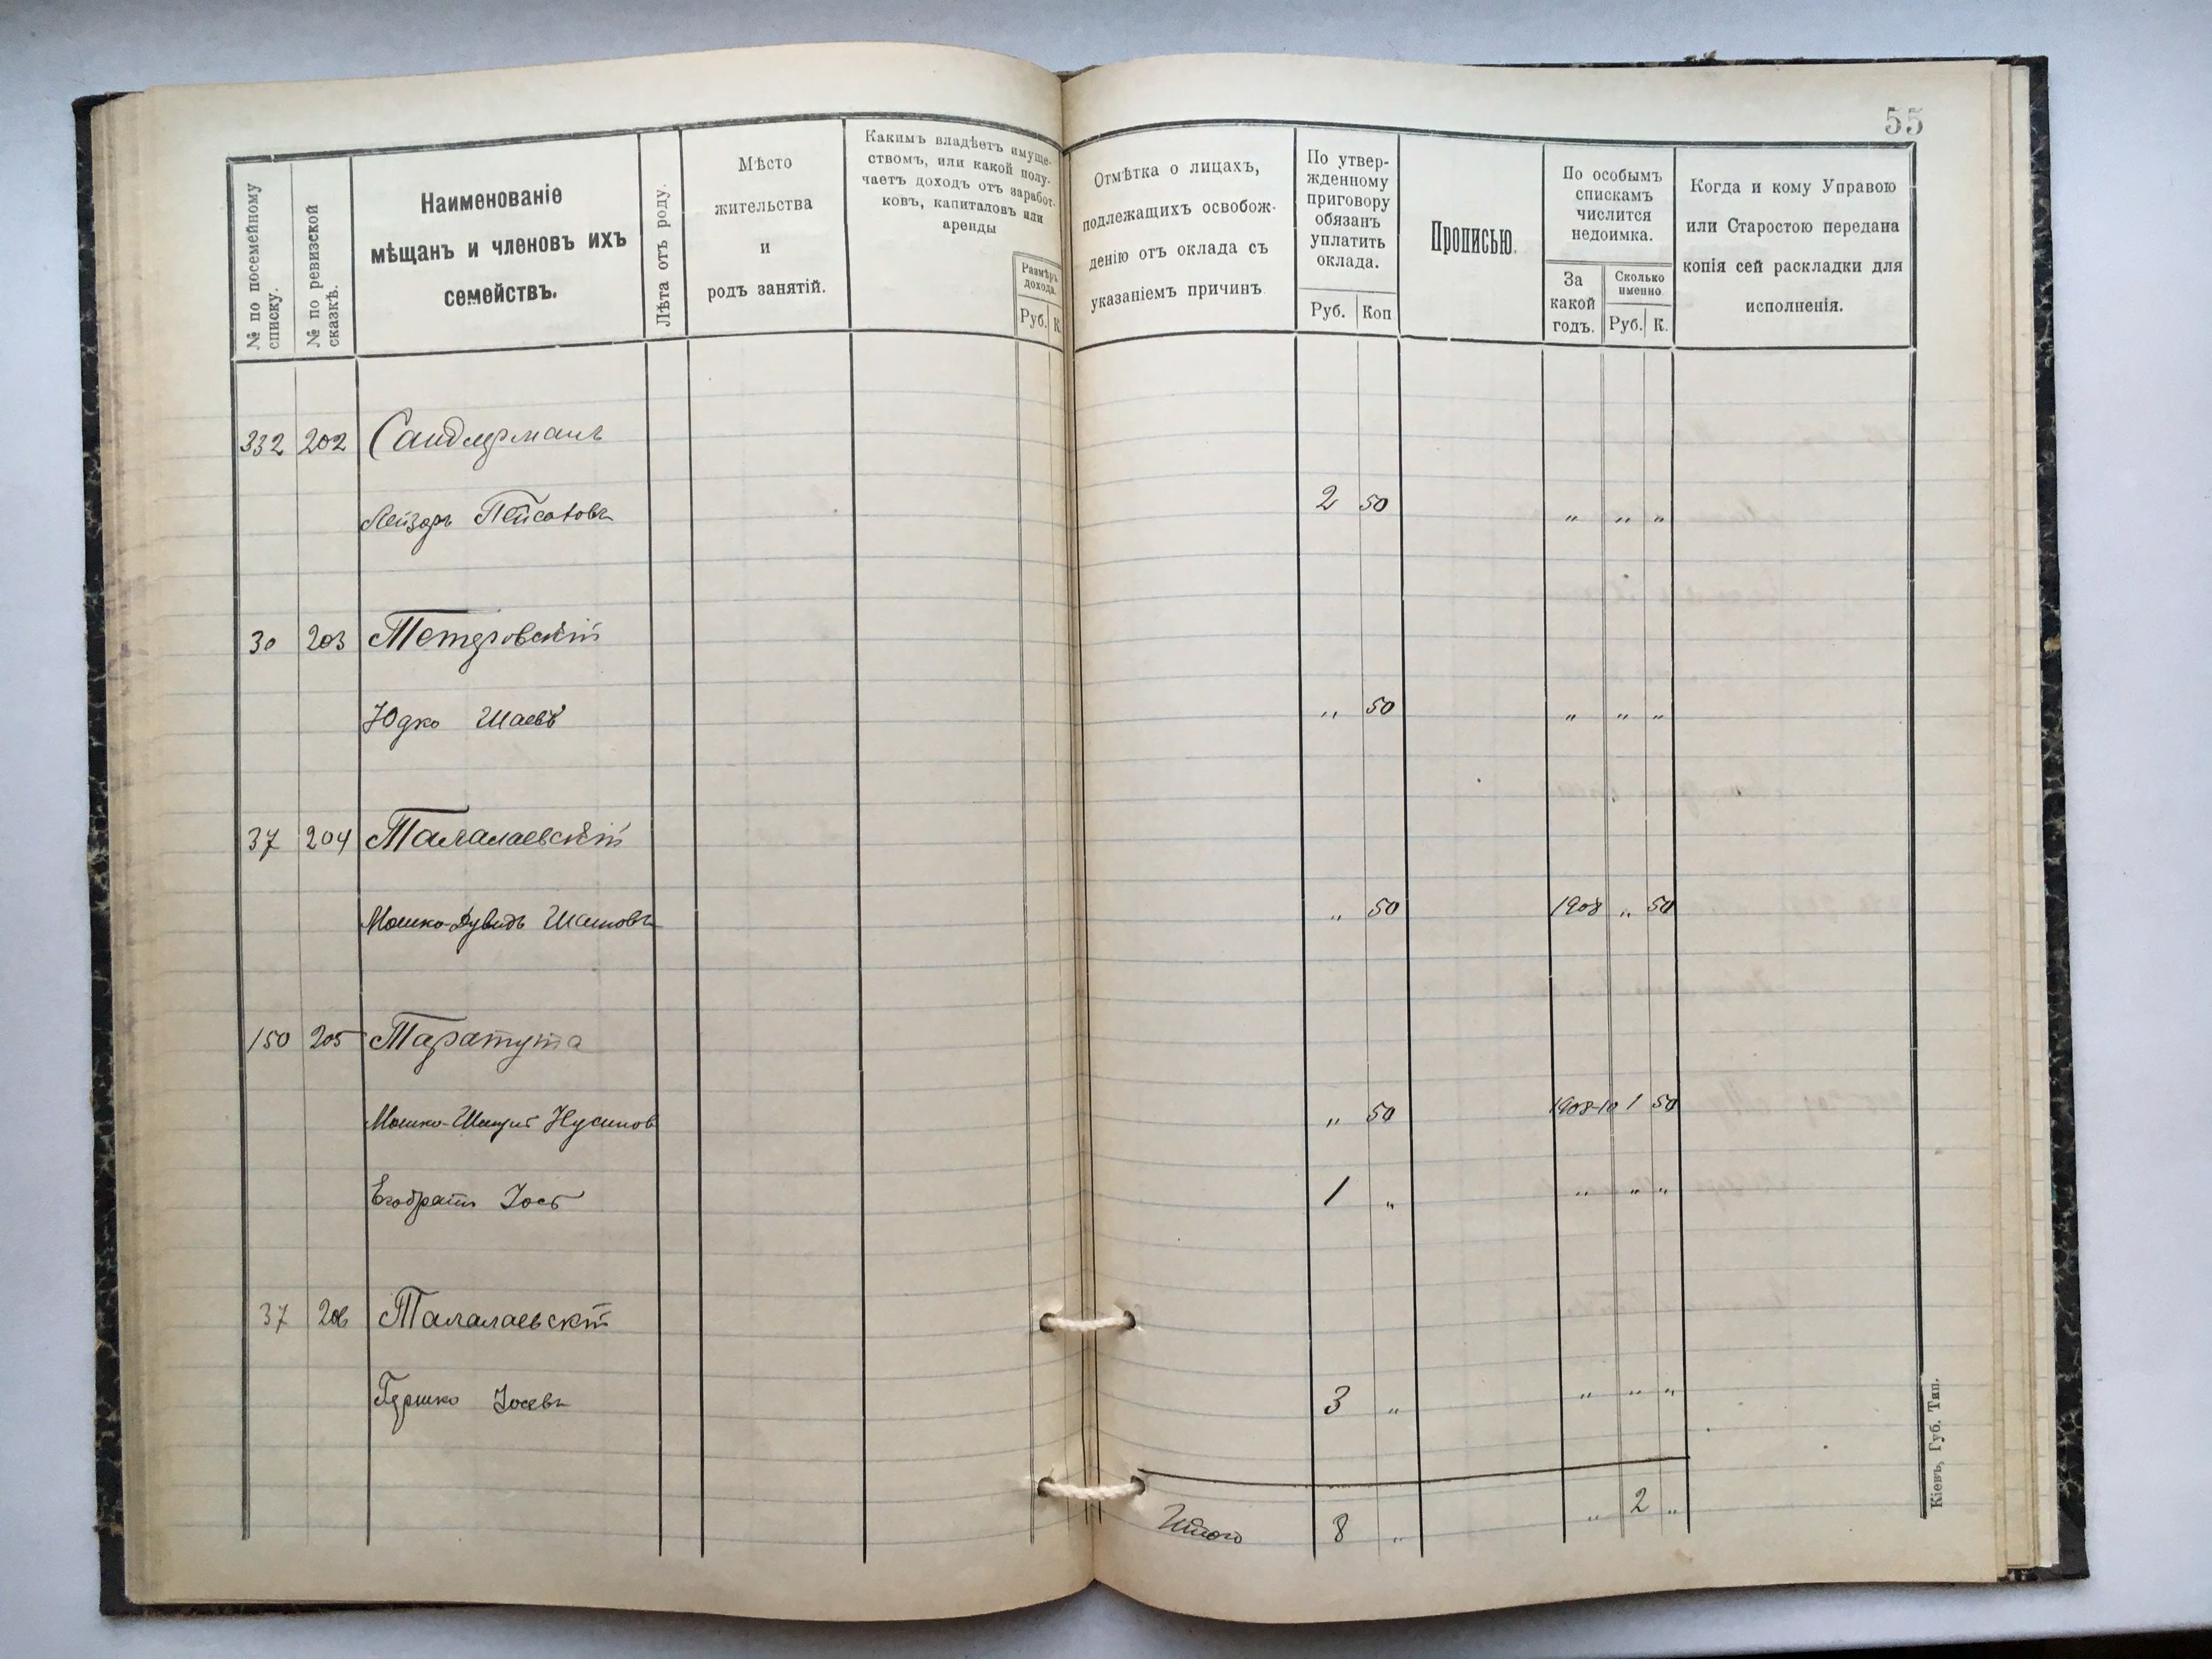 55
№ по посемейному списку.
№ по ревизской сказкѣ.
Наименованіе
мѣщанъ и членовъ ихъ
семействъ.
Лѣта отъ роду.
Мѣсто
жительства
и
родъ занятій.
Какимъ владѣетъ имуще-
ствомъ, или какой полу-
чаетъ доходъ отъ заработ-
ковъ, капиталовъ или
аренды
Размѣръ
дохода.
Руб. К.
Отмѣтка о лицахъ,
подлежащихъ освобож-
денію отъ оклада съ
указаніемъ причинъ
По утвер-
жденному
приговору
обязанъ
уплатить
оклада.
Руб. Коп
Прописью.
По особымъ
спискамъ
числится
недоимка.
За
какой
годъ.
Сколько
именно
Руб. К.
Когда и кому Управою
или Старостою передана
копія сей раскладки для
исполненія.
332 202 Сандлерманъ
Лейзоръ Пейсаховъ 2 50 " " "
30 203 Тетеровскій
Юдко Шаевъ " 50 " " "
37 204 Талалаевскій
Мошко-Дувидъ " 50 1908 " 50
150 205 Таратута
Мошко- Нусинов " 50 1908-10 1 50
Егобратъ Іось 1 " " " "
37 206 Талалаевскій
Гершко Іосевъ 3 " " " "
Итого 8 " " 2 "
Кіевъ, Губ. Тип.